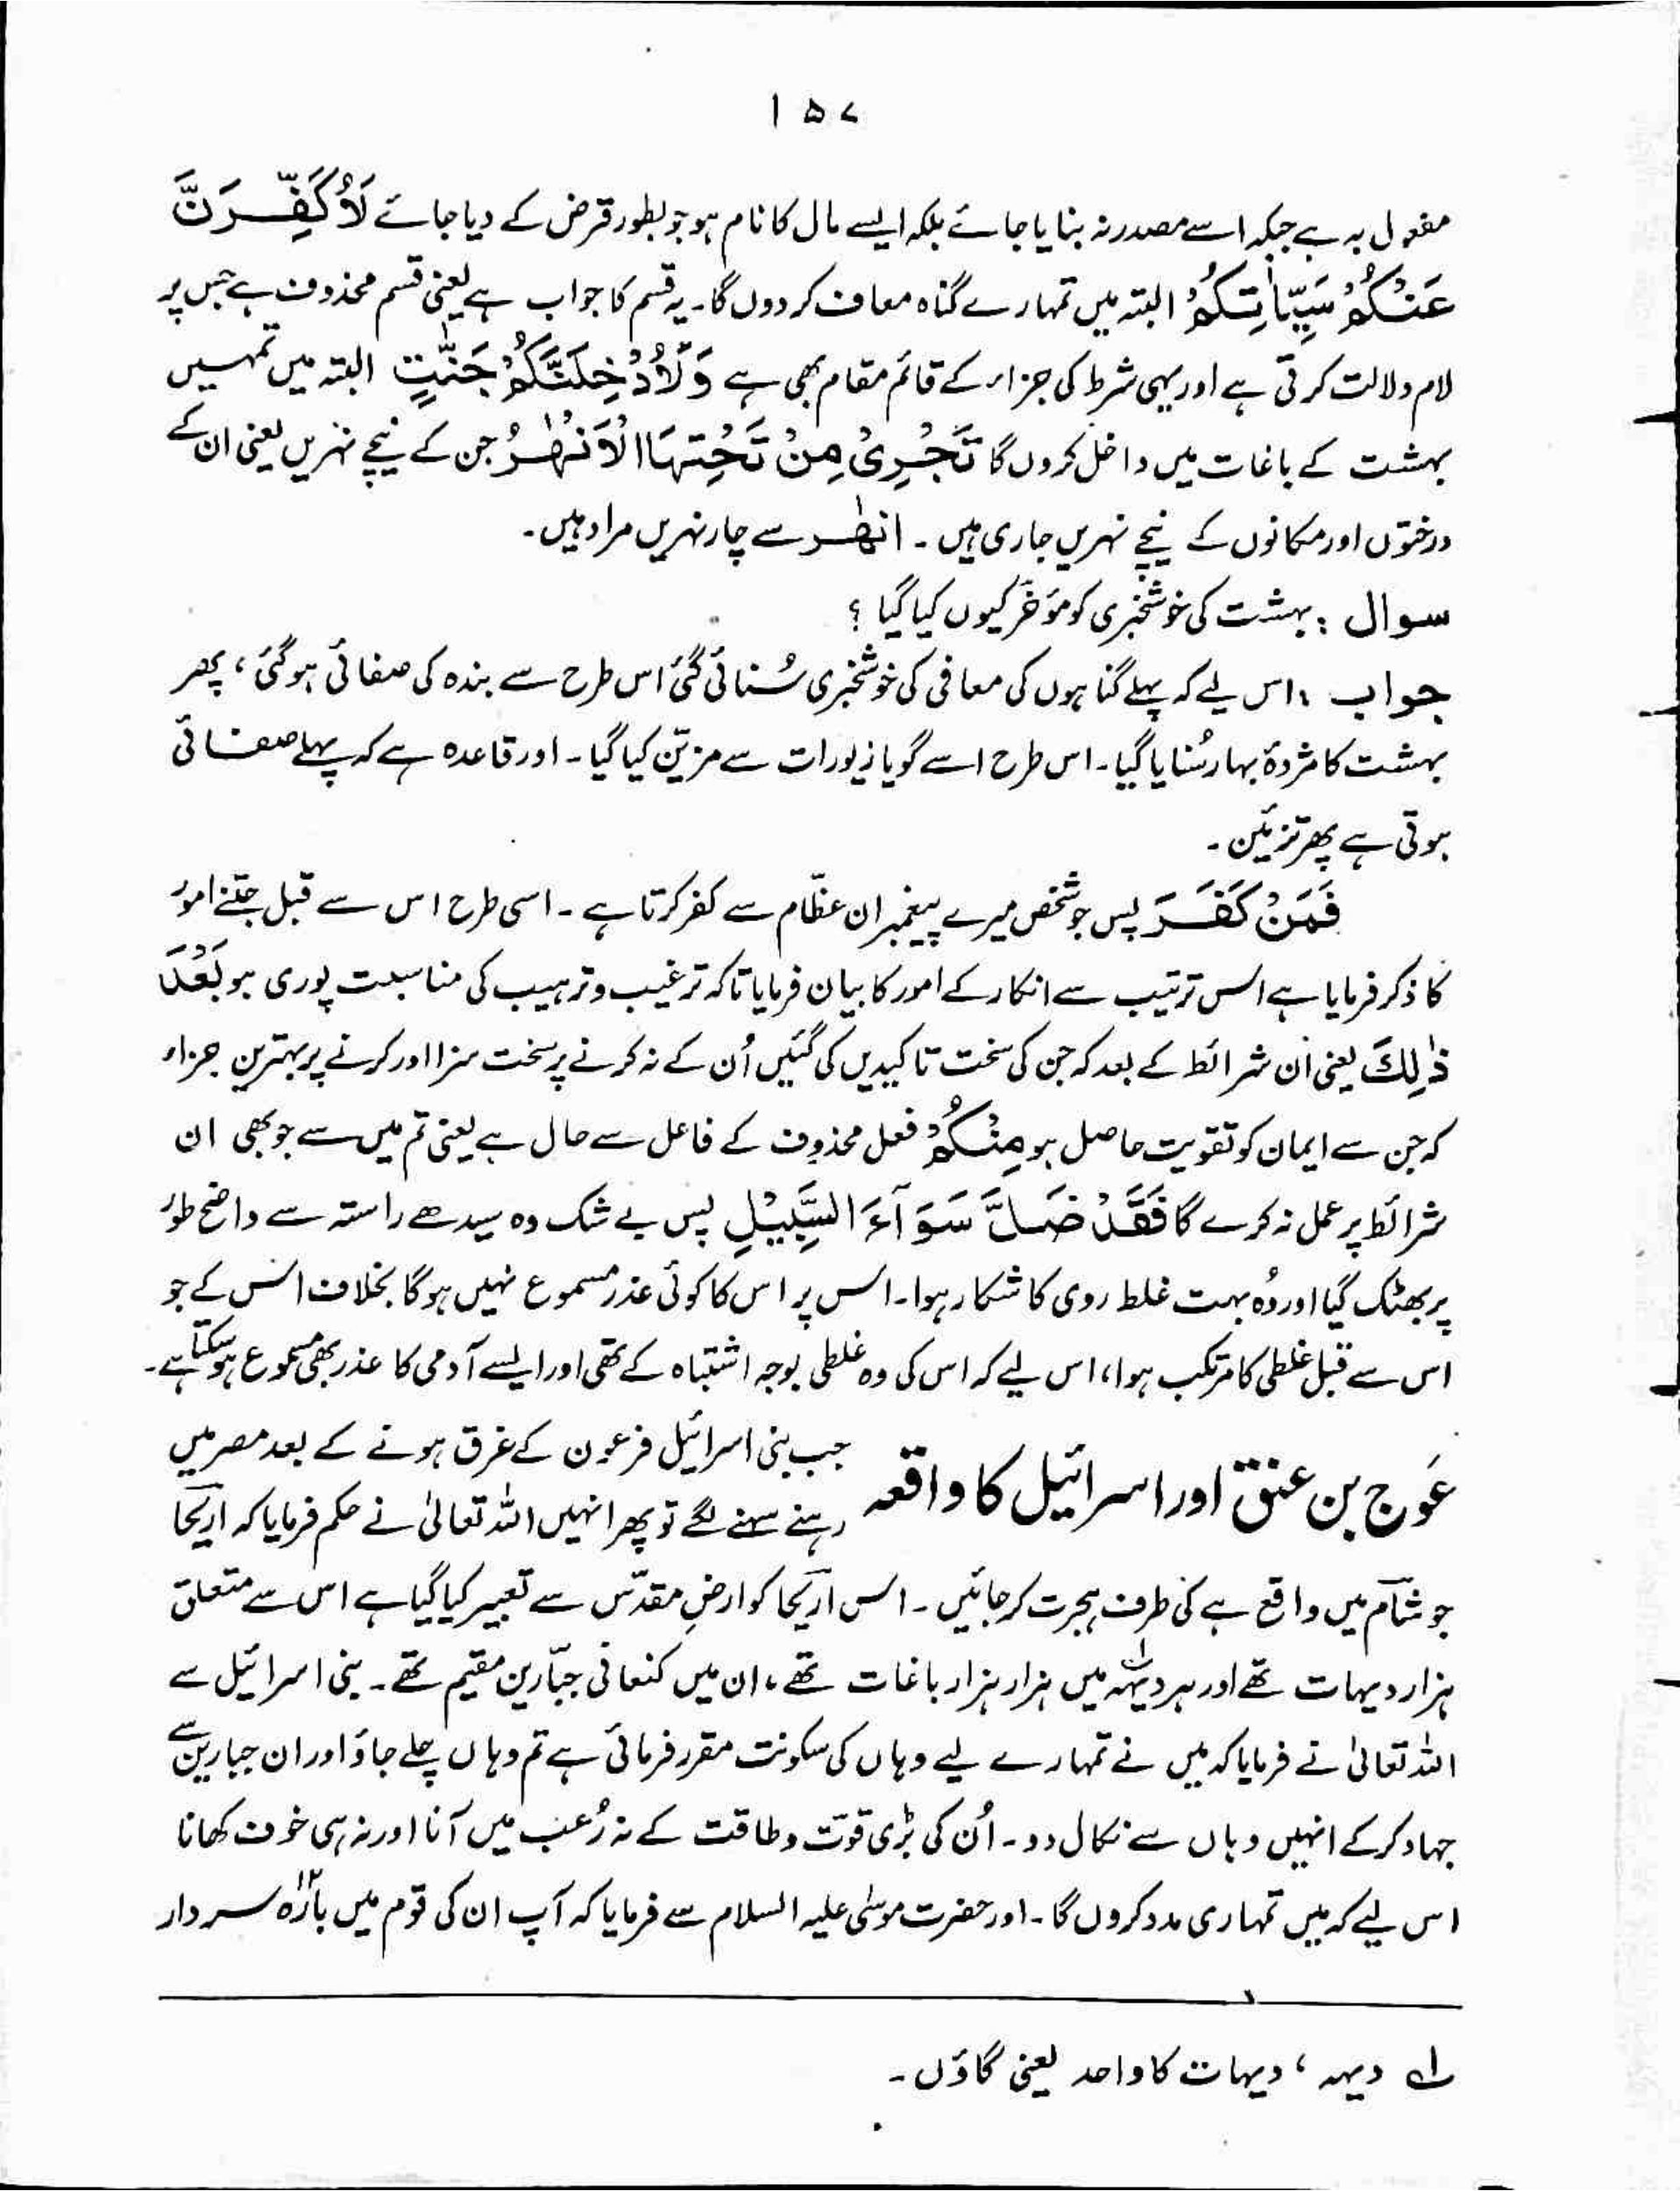 ۱۵۷
مفعول بہ ہے جبکہ اسے مصدر نہ بنایا جائے بلکہ ایسے مال کا نام ہو جو بطور قرض کے دیا جائے لَاُكَفِّرَنَّ
عَنْكُمْ سَيِّاٰتِكُمْ البتہ میں تمہارے گناہ معاف کر دوں گا۔ یہ قسم کا جواب ہے یعنی قسم محذوف ہے جس پر
لام دلالت کرتی ہے اور یہی شرط کی جزاء کے قائم مقام بھی ہے وَلَاُدْخِلَنَّكُمْ جَنّٰتٍ البتہ میں تمہیں
بہشت کے باغات میں داخل کروں گا تَجْرِیْ مِنْ تَحْتِهَا الْاَنْهٰرُ جن کے نیچے نہریں یعنی ان کے
درختوں اور مکانوں کے نیچے نہریں جاری ہیں۔ انھٰر سے چار نہریں مراد ہیں۔
سوال : بہشت کی خوشخبری کو مؤخر کیوں کیا گیا ؟
جواب : اس لیے کہ پہلے گناہوں کی معافی کی خوشخبری سُنائی گئی اس طرح سے بندہ کی صفائی ہوگئی ، پھر
بہشت کا مژدۂ بہار سُنایا گیا۔ اس طرح اسے گویا زیورات سے مزیّن کیا گیا۔ اور قاعدہ ہے کہ پہلے صفائی
ہوتی ہے پھر تزئین۔
فَمَنْ كَفَرَ پس جو شخص میرے پیغمبرانِ عظّام سے کفر کرتا ہے۔ اسی طرح اس سے قبل جتنے امور
کا ذکر فرمایا ہے اس ترتیب سے انکار کے امور کا بیان فرمایا تاکہ ترغیب و ترہیب کی مناسبت پوری ہو بَعْدَ
ذٰلِكَ یعنی اُن شرائط کے بعد کہ جن کی سخت تاکیدیں کی گئیں اُن کے نہ کرنے پر سخت سزا اور کرنے پر بہترین جزاء
کہ جن سے ایمان کو تقویت حاصل ہو مِنْكُمْ فعل محذوف کے فاعل سے حال ہے یعنی تم میں سے جو بھی ان
شرائط پر عمل نہ کرے گا فَقَدْ ضَلَّ سَوَآءَ السَّبِيْلِ پس بے شک وہ سیدھے راستہ سے واضح طور
پر بھٹک گیا اور وُہ بہت غلط روی کا شکار ہوا۔ اس پر اس کا کوئی عذر مسموع نہیں ہوگا بخلاف اس کے جو
اس سے قبل غلطی کا مرتکب ہوا، اس لیے کہ اس کی وہ غلطی بوجہ اشتباہ کے تھی اور ایسے آدمی کا عذر بھی مسموع ہوسکتا ہے۔
عَوج بن عنق اور اسرائیل کا واقعہ
جب بنی اسرائیل فرعون کے غرق ہونے کے بعد مصر میں
رہنے سہنے لگے تو پھر انہیں اللہ تعالیٰ نے حکم فرمایا کہ اریحا
جو شام میں واقع ہے کی طرف ہجرت کر جائیں۔ اس اریحا کو ارضِ مقدّس سے تعبیر کیا گیا ہے اس سے متعلق
ہزار دیہات تھے اور ہر دیہہ ؂۱ میں ہزار ہزار باغات تھے، ان میں کنعانی جبّارین مقیم تھے۔ بنی اسرائیل سے
اللہ تعالیٰ نے فرمایا کہ میں نے تمہارے لیے وہاں کی سکونت مقرر فرمائی ہے تم وہاں چلے جاؤ اور ان جبارین سے
جہاد کرکے انہیں وہاں سے نکال دو۔ اُن کی بڑی قوّت و طاقت کے نہ رُعب میں آنا اور نہ ہی خوف کھانا
اس لیے کہ میں تمہاری مدد کروں گا۔ اور حضرت موسیٰ علیہ السلام سے فرمایا کہ آپ ان کی قوم میں بارہ ۱۲ سردار
؂۱ دیہہ ، دیہات کا واحد یعنی گاؤں۔